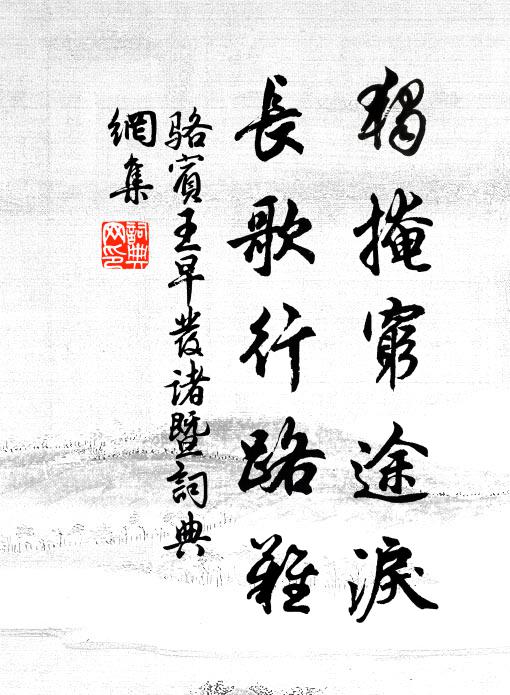 獨掩窮途淚
長歌行路難
駱賓王早發諸暨詞典
網集
詞典
网印